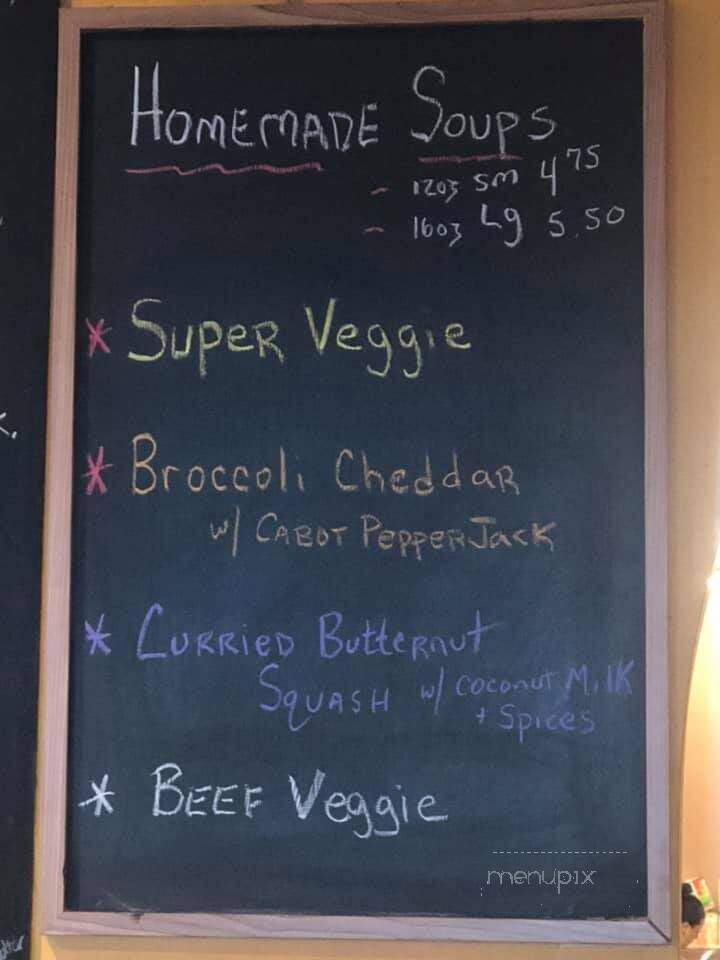 HOMEMADE SOUPS
- 12oz sm 4 75
- 16oz Lg 5.50
* SUPER Veggie
* Broccoli CheddaR
w/ CABOT PEPPERJACK
* CURRIED ButteRNut
SQUASH w/ COCONUT MilK
+ Spices
* BEEF Veggie
menupix